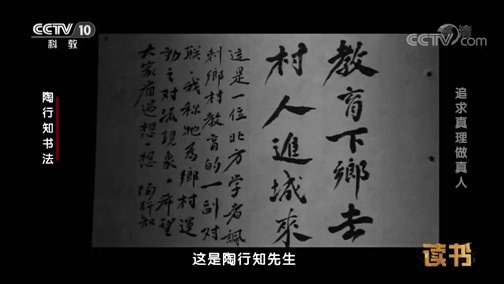 CCTV 10
科教
CCTV.com
追求真理做真人
教育下鄉去
村人進城來
這是一位北方學者諷
刺鄉村教育的一副对
聯。我称牠為鄉村運
動之对流現象。希望
大家看過想一想 陶行知
陶行知书法
读书
这是陶行知先生